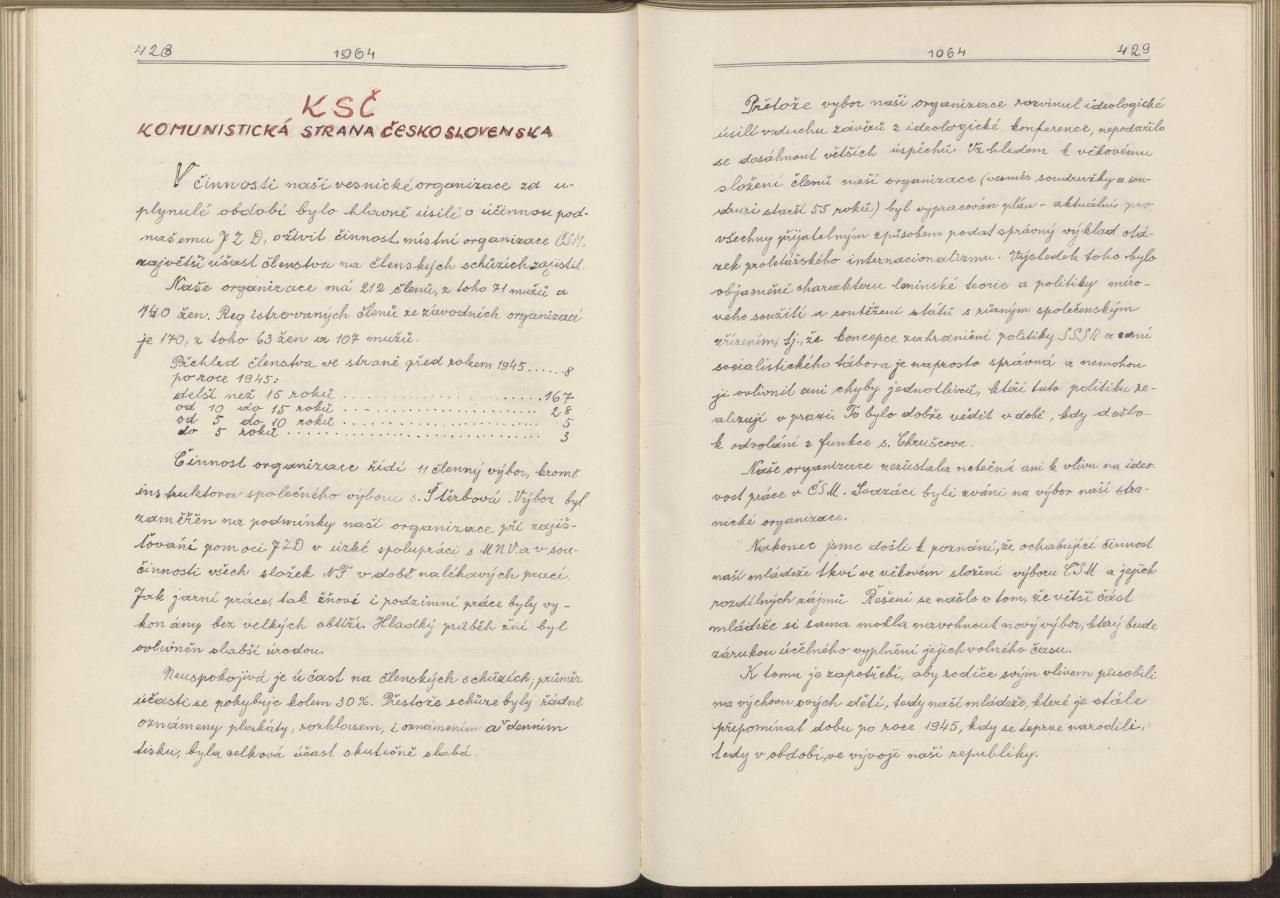 428 1964
KSČ
KOMUNISTICKÁ STRANA ČESKOSLOVENSKA
V činnosti naší vesnické organizace za u-
plynulé období bylo hlavně úsilí o účinnou pod-
našemu JZD, oživit činnost místní organizace ČSM,
největší účast členstva na členských schůzích zajistit.
Naše organizace má 212 členů, z toho 71 mužů a
140 žen. Registrovaných členů ze závodních organizací
je 170, z toho 63 žen a 107 mužů.
Přehled členstva ve straně před rokem 1945......8
po roce 1945:
delší než 15 roků .............................167
od 10 do 15 roků ........................... 28
od 5 do 10 roků ........................... 5
do 5 roků ................................. 3
Činnost organizace řídí 11 členný výbor, kromě
instruktora společného výboru s. Štěrbová. Výbor byl
zaměřen na podmínky naší organizace při zajiš-
ťování pomoci JZD v úzké spolupráci s MNV a v sou-
činnosti všech složek NF v době naléhavých prací.
Jak jarní práce, tak žňové i podzimní práce byly vy-
konány bez velkých obtíží. Hladký průběh žní byl
ovlivněn slabší úrodou.
Neuspokojivá je účast na členských schůzích; průměr
účasti se pohybuje kolem 30%. Přestože schůze byly řádně
oznámeny plakáty, rozhlasem, i oznámením a v denním
tisku, byla celková účast skutečně slabá.
1964 429
Přetože vybor naší organizace rozvinul ideologické
úsilí v duchu závěrů z ideologické konference, nepodařilo
se dosáhnout větších úspěchů. Vzhledem k věkovému
složení členů naší organizace (vesměs soudružky a sou-
druzi starší 55 roků) byl vypracován plán - aktuální pro
všechny přijatelným způsobem podat správný výklad otá-
zek proletářského internacionalizmu. Výsledek toho bylo
objasnění charakteru leninské teorie a politiky míro-
vého soužití a soutěžení států s různým společenským
zřízením, tj., že koncepce zahraniční politiky SSSR a
socialistického tábora je naprosto správná a nemohou
ji ovlivnit ani chyby jednotlivců, kteří tuto politiku re-
alizují v praxi. To bylo dobře vědět v době, kdy došlo
k odvolání z funkce s. Chruščova.
Naše organizace nezůstala netečná ani k vlivu na ideo-
vost práce v ČSM. Svazáci byli zváni na výbor naší stra-
nické organizace.
Nakonec jsme došli k poznání, že ochabující činnost
naší mládeže tkví ve věkovém složení výboru ČSM a jejich
rozdílných zájmů. Řešení se našlo v tom, že větší část
mládeže si sama mohla navrhnout nový výbor, který bude
zárukou účelného vyplnění jejich volného času.
K tomu je zapotřebí, aby rodiče svým vlivem působili
na výchovu svých dětí, tedy naší mládeže, které je stále
připomínat dobu po roce 1945, kdy se teprve narodili,
tedy v období, ve vývoji naší republiky.